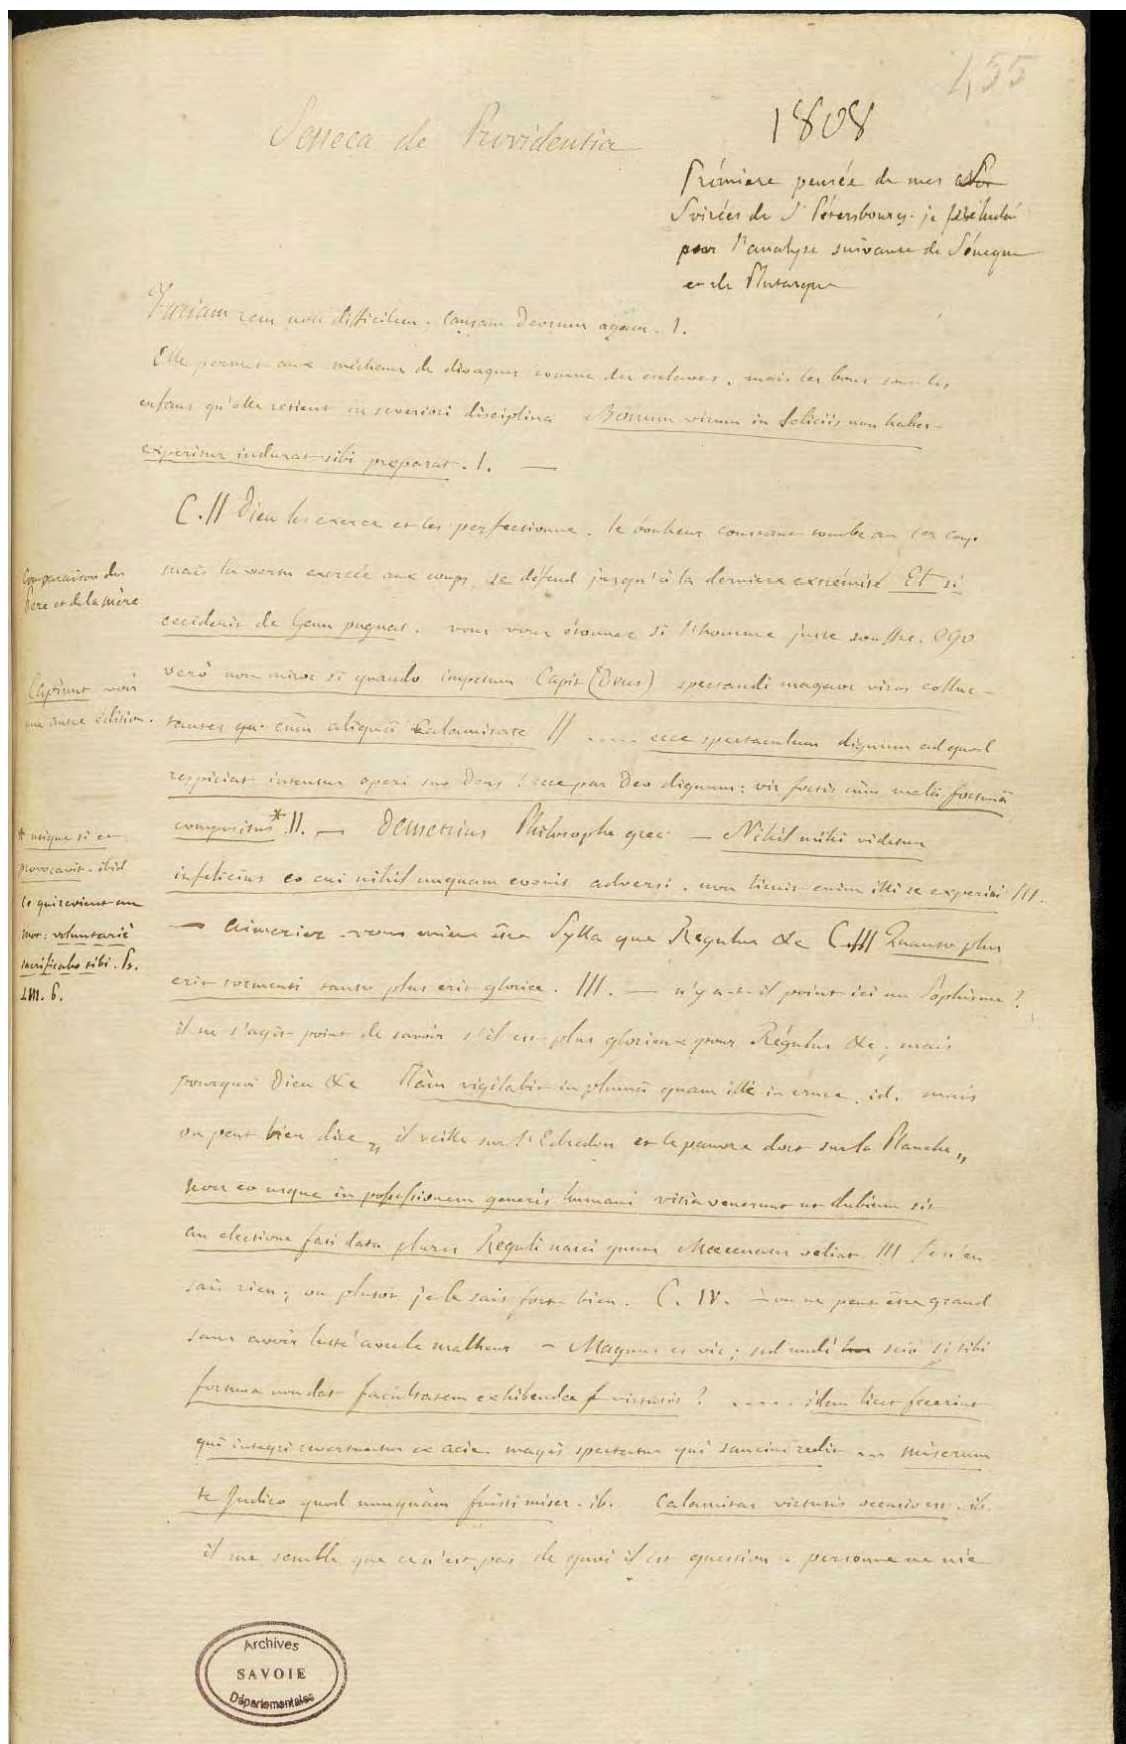 455
Seneca de Providentia
1808
Prémiere pensée de mes
Soirées de St Pétersbourg. je préludai
par l'analyse suivante de Séneque
et de Plutarque
Faciam rem non difficilem; causam Deorum agam. 1.
Elle permet aux méchans de divaguer comme des esclaves, mais les bons sont les
enfans qu'elle retient in severiori disciplina Bonum virum in deliciis non habet
experitur indurat sibi preparat. 1. —
C. II Dieu les exerce et les perfectionne. le bonheur constant tombe au 1er coup
mais la vertu exercée aux coups, se défend jusqu'à la derniere extrémité Et si
ceciderit de Genu pugnat. vous vous étonnez si l'homme juste souffre. Ego
verò non miror si quando impetum Capit (Deus) spectandi magnos viros colluc-
tantes cùm aliquâ Calamitate II ..... ecce spectaculum dignum ad quod
respiciat intentus operi suo Deus! ecce par Deo dignum: vir fortis cùm malâ fortunâ
compositus*. II. — Demetrius Philosophe grec — Nihil mihi videtur
infelicius eo cui nihil unquam evenit adversi. non licuit enim illi se experiri III.
— aimeriez vous mieux être Sylla que Regulus &c C. III Quanto plus
erit tormenti tanto plus erit gloriæ. III. — n'y a-t-il point ici un Sophisme?
il ne s'agit point de savoir s'il est plus glorieux pour Régulus &c; mais
pourquoi Dieu &c Tàm vigilabit in plumâ quam ille in cruce. id. mais
on peut bien dire „ il veille sur l'Edredon et le pauvre dort sur la Planche „
non eo usque in possessionem generis humani vitia venerunt ut dubium sit
an electione fati data plures Reguli nasci quam Mæcenates velint. III Je n'en
sais rien; ou plutot je le sais fort bien. C. IV. — on ne peut être grand
sans avoir lutté avec le malheur — Magnus es vir; sed undè scio si tibi
fortuna non dat facultatem exhibendæ virtutis? ..... idem licet fecerint
qui integri revertuntur ex acie magis spectatur qui saucius redit ... miserum
te Judico quod nunquàm fuisti miser. ib. Calamitas virtutis occasio est. ib.
il me semble que ce n'est pas de quoi il est question. personne ne nie
Comparaison du
Pere et de la mère
Capiunt voir
une autre édition.
* utique si et
provocavit. ibid
ce qui revient au
mot: voluntariè
sacrificabo tibi. Ps.
LIII. 6.
Archives
SAVOIE
Départementales